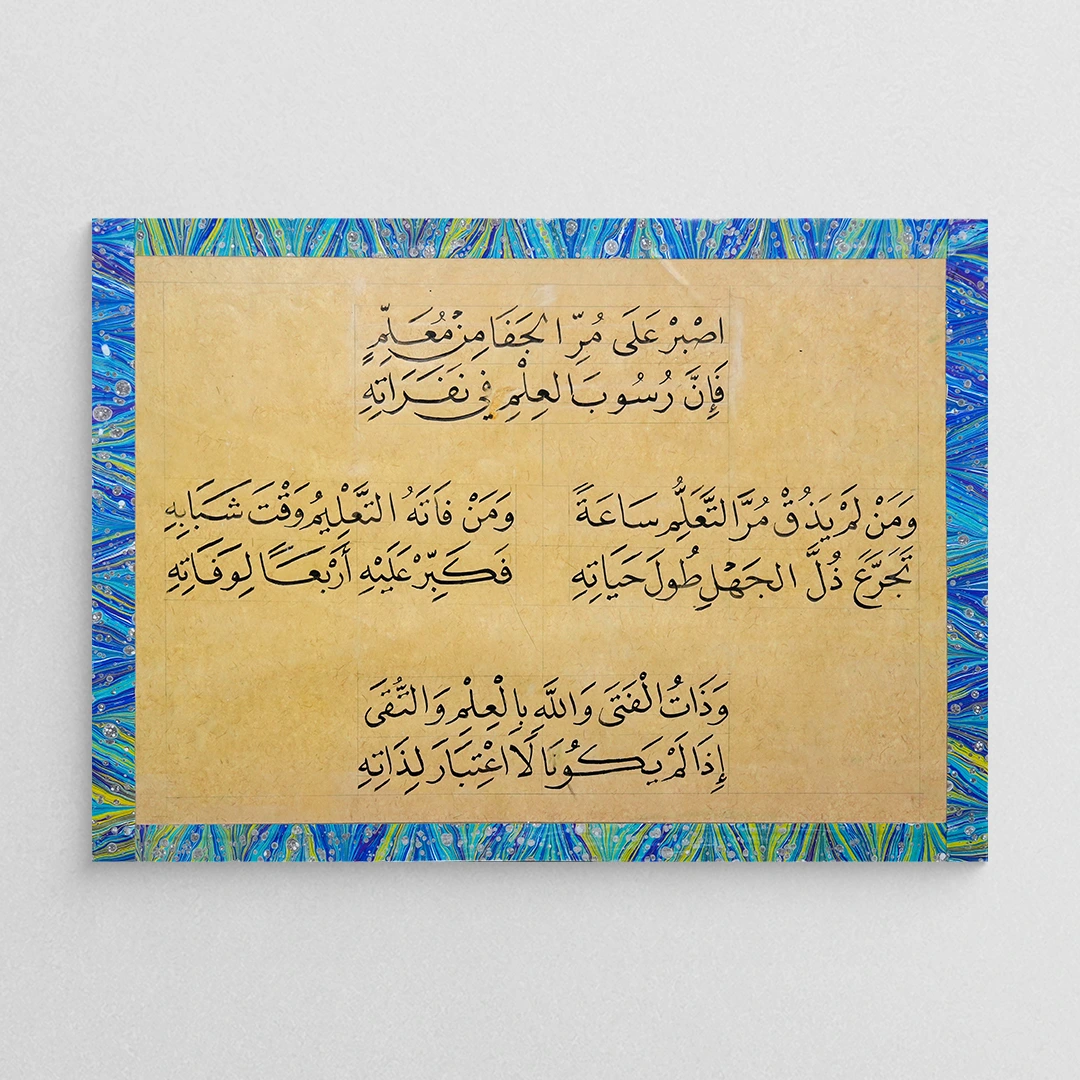 اصْبِرْ عَلَى مُرِّ الْجَفَا مِنْ مُعَلِّمٍ
فَإِنَّ رُسُوبَ العِلْمِ فِي نَفَرَاتِهِ
وَمَنْ لَمْ يَذُقْ مُرَّ التَّعَلُّمِ سَاعَةً
تَجَرَّعَ ذُلَّ الجَهْلِ طُولَ حَيَاتِهِ
وَمَنْ فَاتَهُ التَّعْلِيمُ وَقْتَ شَبَابِهِ
فَكَبِّرْ عَلَيْهِ أَرْبَعًا لِوَفَاتِهِ
وَذَاتُ الْفَتَى وَاللَّهِ بِالْعِلْمِ وَالتُّقَى
إِذَا لَمْ يَكُونَا لَا اعْتِبَارَ لِذَاتِهِ